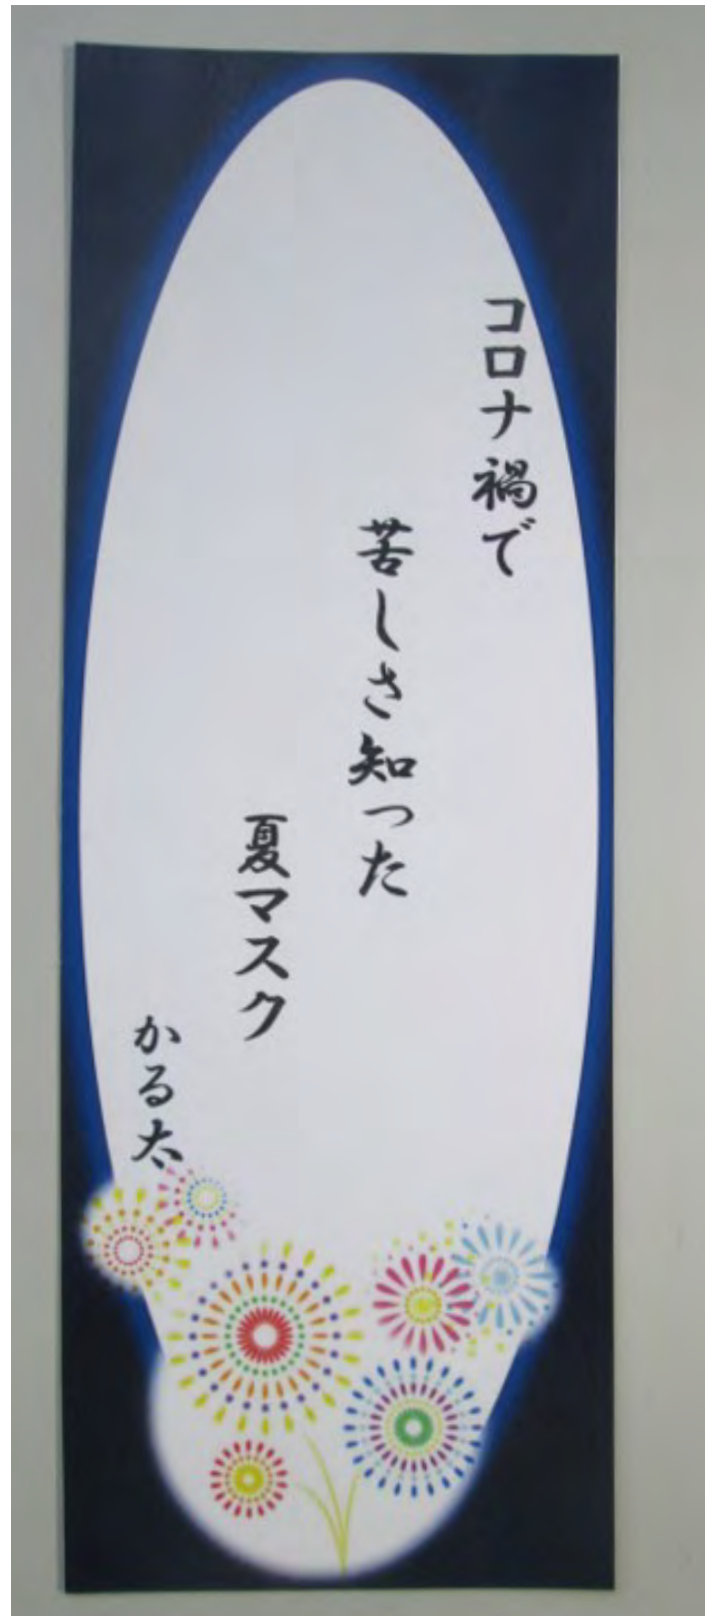 コロナ禍で
苦しさ知った
夏マスク
かる太